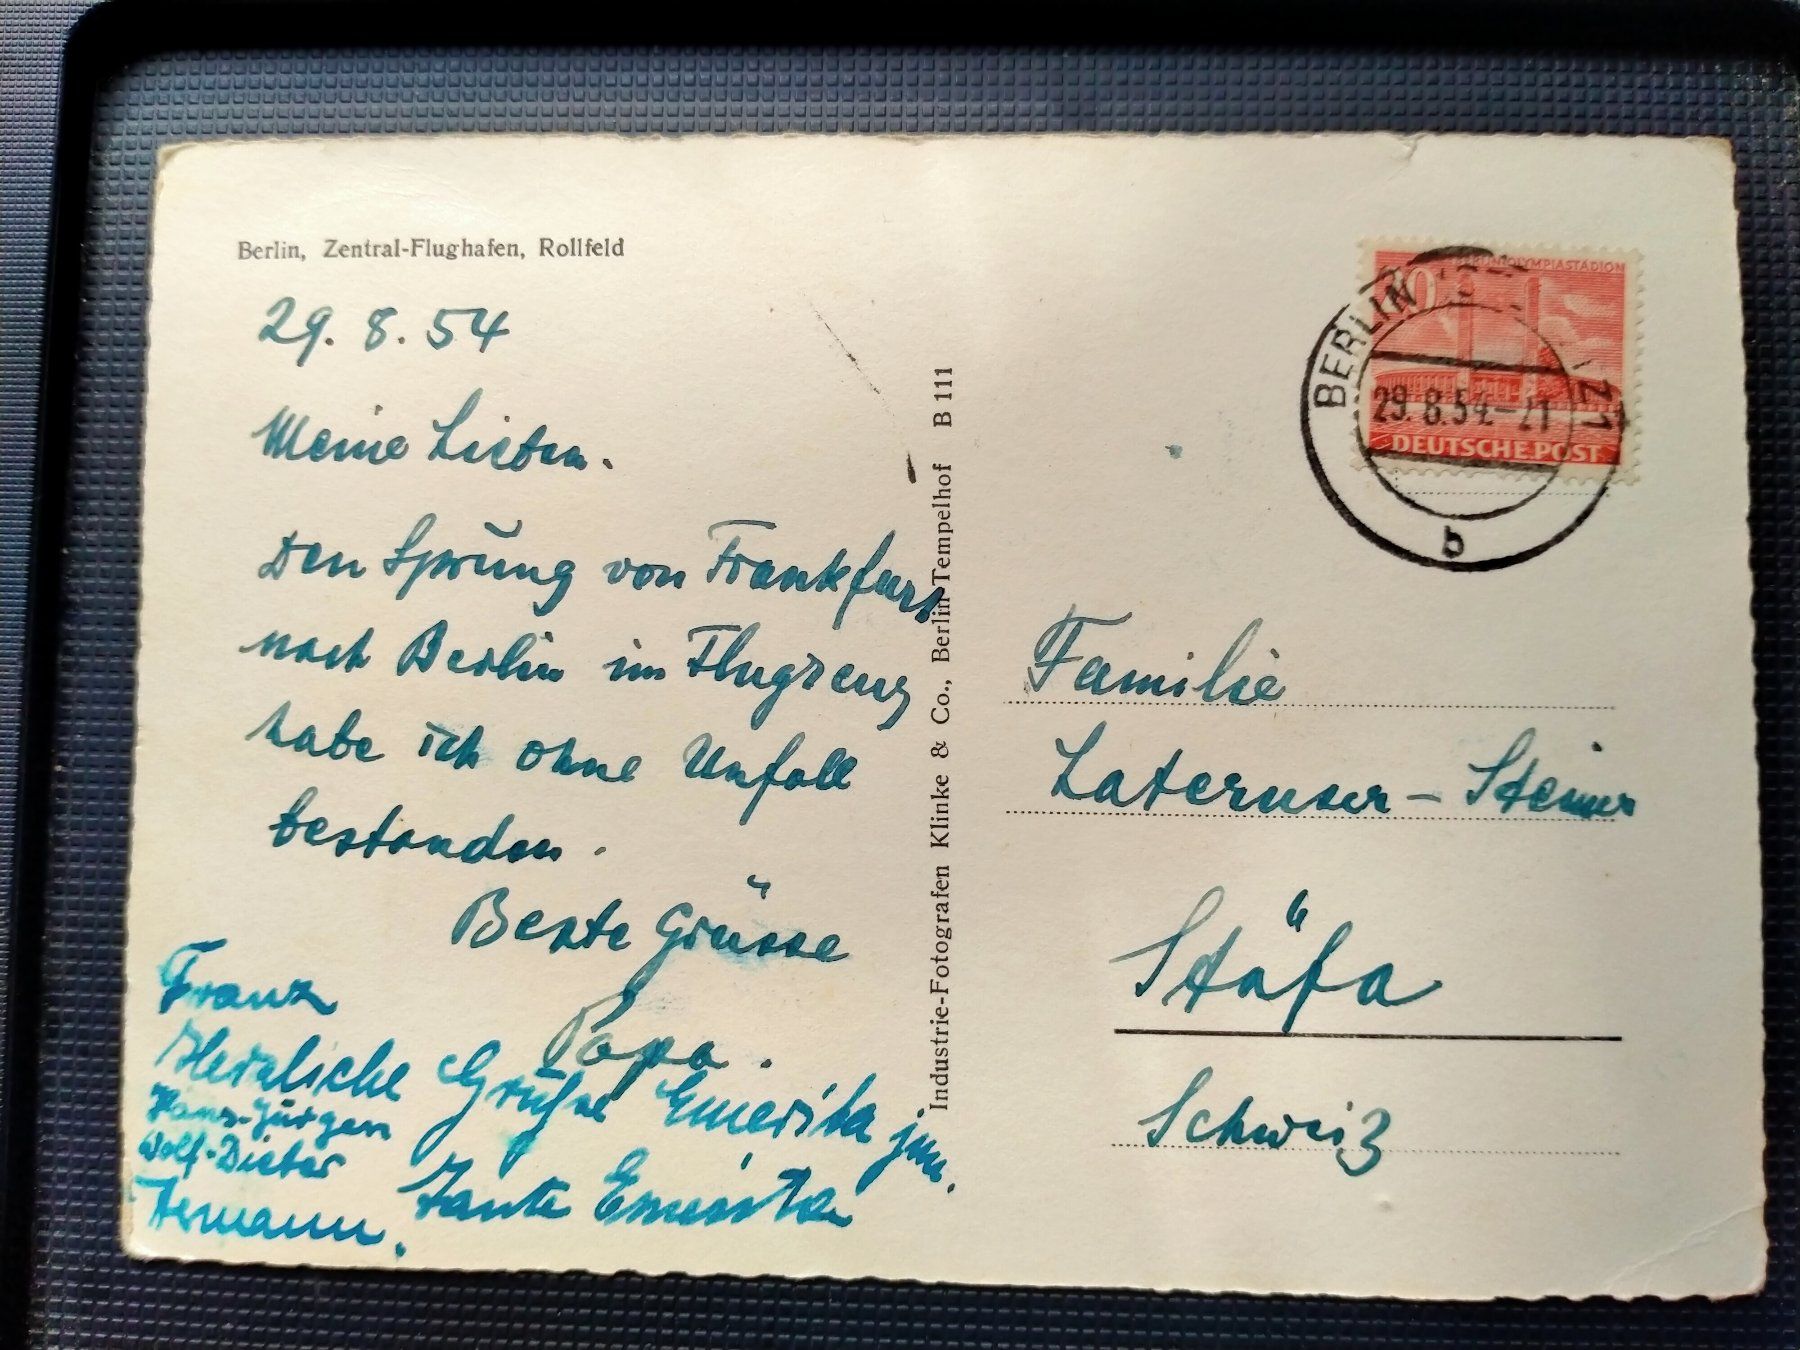 Berlin, Zentral-Flughafen, Rollfeld
29. 8. 54
Meine Lieben.
Den Sprung von Frankfurt
nach Berlin im Flugzeug
habe ich ohne Unfall
bestanden.
Beste Grüsse
Papa.
Franz
Herzliche Grüße Emerita jun.
Hans-Jürgen
Wolf-Dieter
Hermann.
Tante Emerita
Industrie-Fotografen Klinke & Co., Berlin-Tempelhof B 111
20 BERLIN·OLYMPIASTADION
DEUTSCHE POST
BERLIN
29.8.54-21
b
Familie
Laternser - Steiner
Stäfa
Schweiz